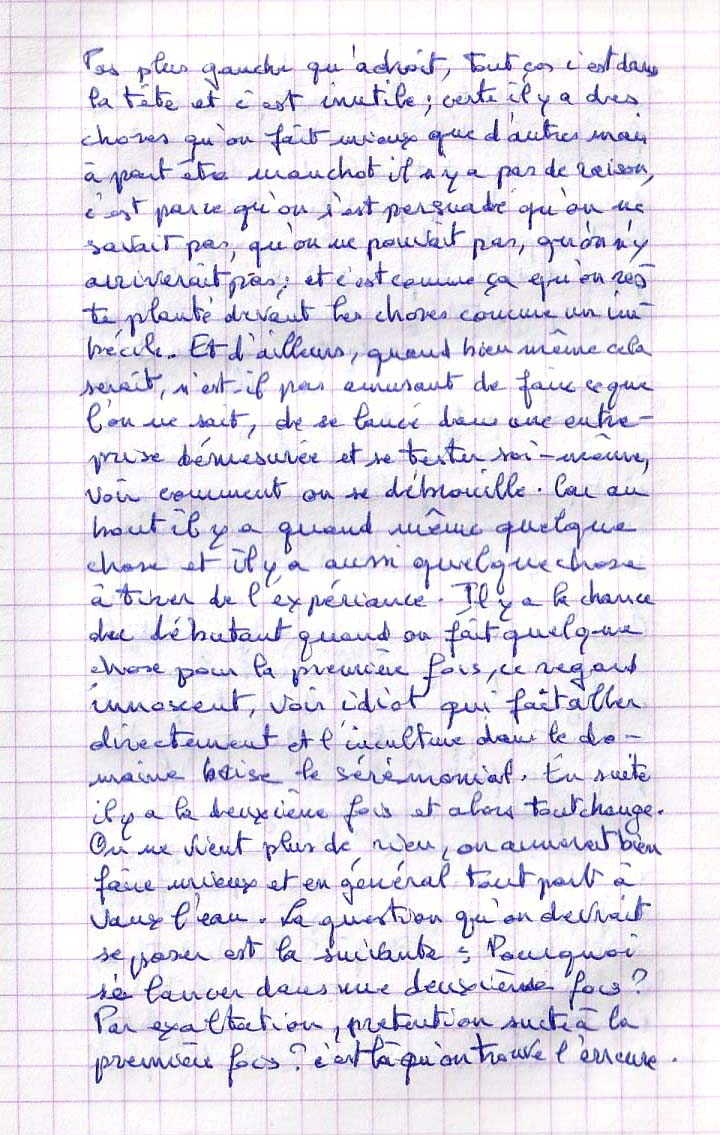 Pas plus gauche qu'adroit, tout ças c'est dans
la tête et c'est inutile ; certe il y a des
choses qu'on fait mieux que d'autres mais
à part être manchot il n'y a pas de raison,
c'est parce qu'on s'est persuadé qu'on ne
savait pas, qu'on ne pouvait pas, qu'on n'y
arriverait pas ; et c'est comme ça qu'on res
te planté devant les choses comme un im-
bécile. Et d'ailleurs, quand bien même cela
serait, n'est-il pas amusant de faire ce que
l'on ne sait, de se lancé dans une entre-
prise démesurée et se tester soi-même,
voir comment on se débrouille. Car au
bout il y a quand même quelque
chose et il y a aussi quelque chose
à tirer de l'expériance. Il y a la chance
du débutant quand on fait quelque
chose pour la première fois, ce regard
innoscent, voir idiot qui fait aller
directement et l'inculture dans le do-
maine brise le sérémonial. En suite
il y a la deuxième fois et alors tout change.
On ne vient plus de rien, on aimerait bien
faire mieux et en général tout part à
vaux l'eau. La question qu'on devrait
se poser est la suivante : Pourquoi
se lancer dans une deuxième fois ?
Par exaltation, prétention suite à la
première fois ? c'est là qu'on trouve l'erreure.